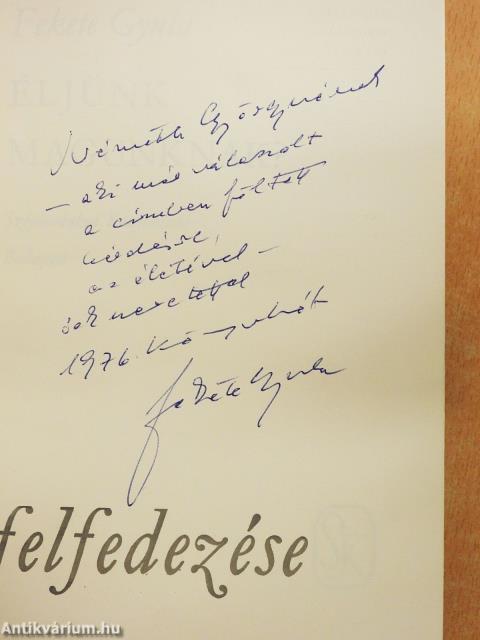 Fekete Gyula
ÉLJÜNK
MAGUNKNAK?
Németh Györgyinének
– aki már válaszolt
a címben föltett
kérdésre,
az életével –
sok szeretettel
1976. Könyvhét
Fekete Gyula
felfedezése
Antikvárium.hu